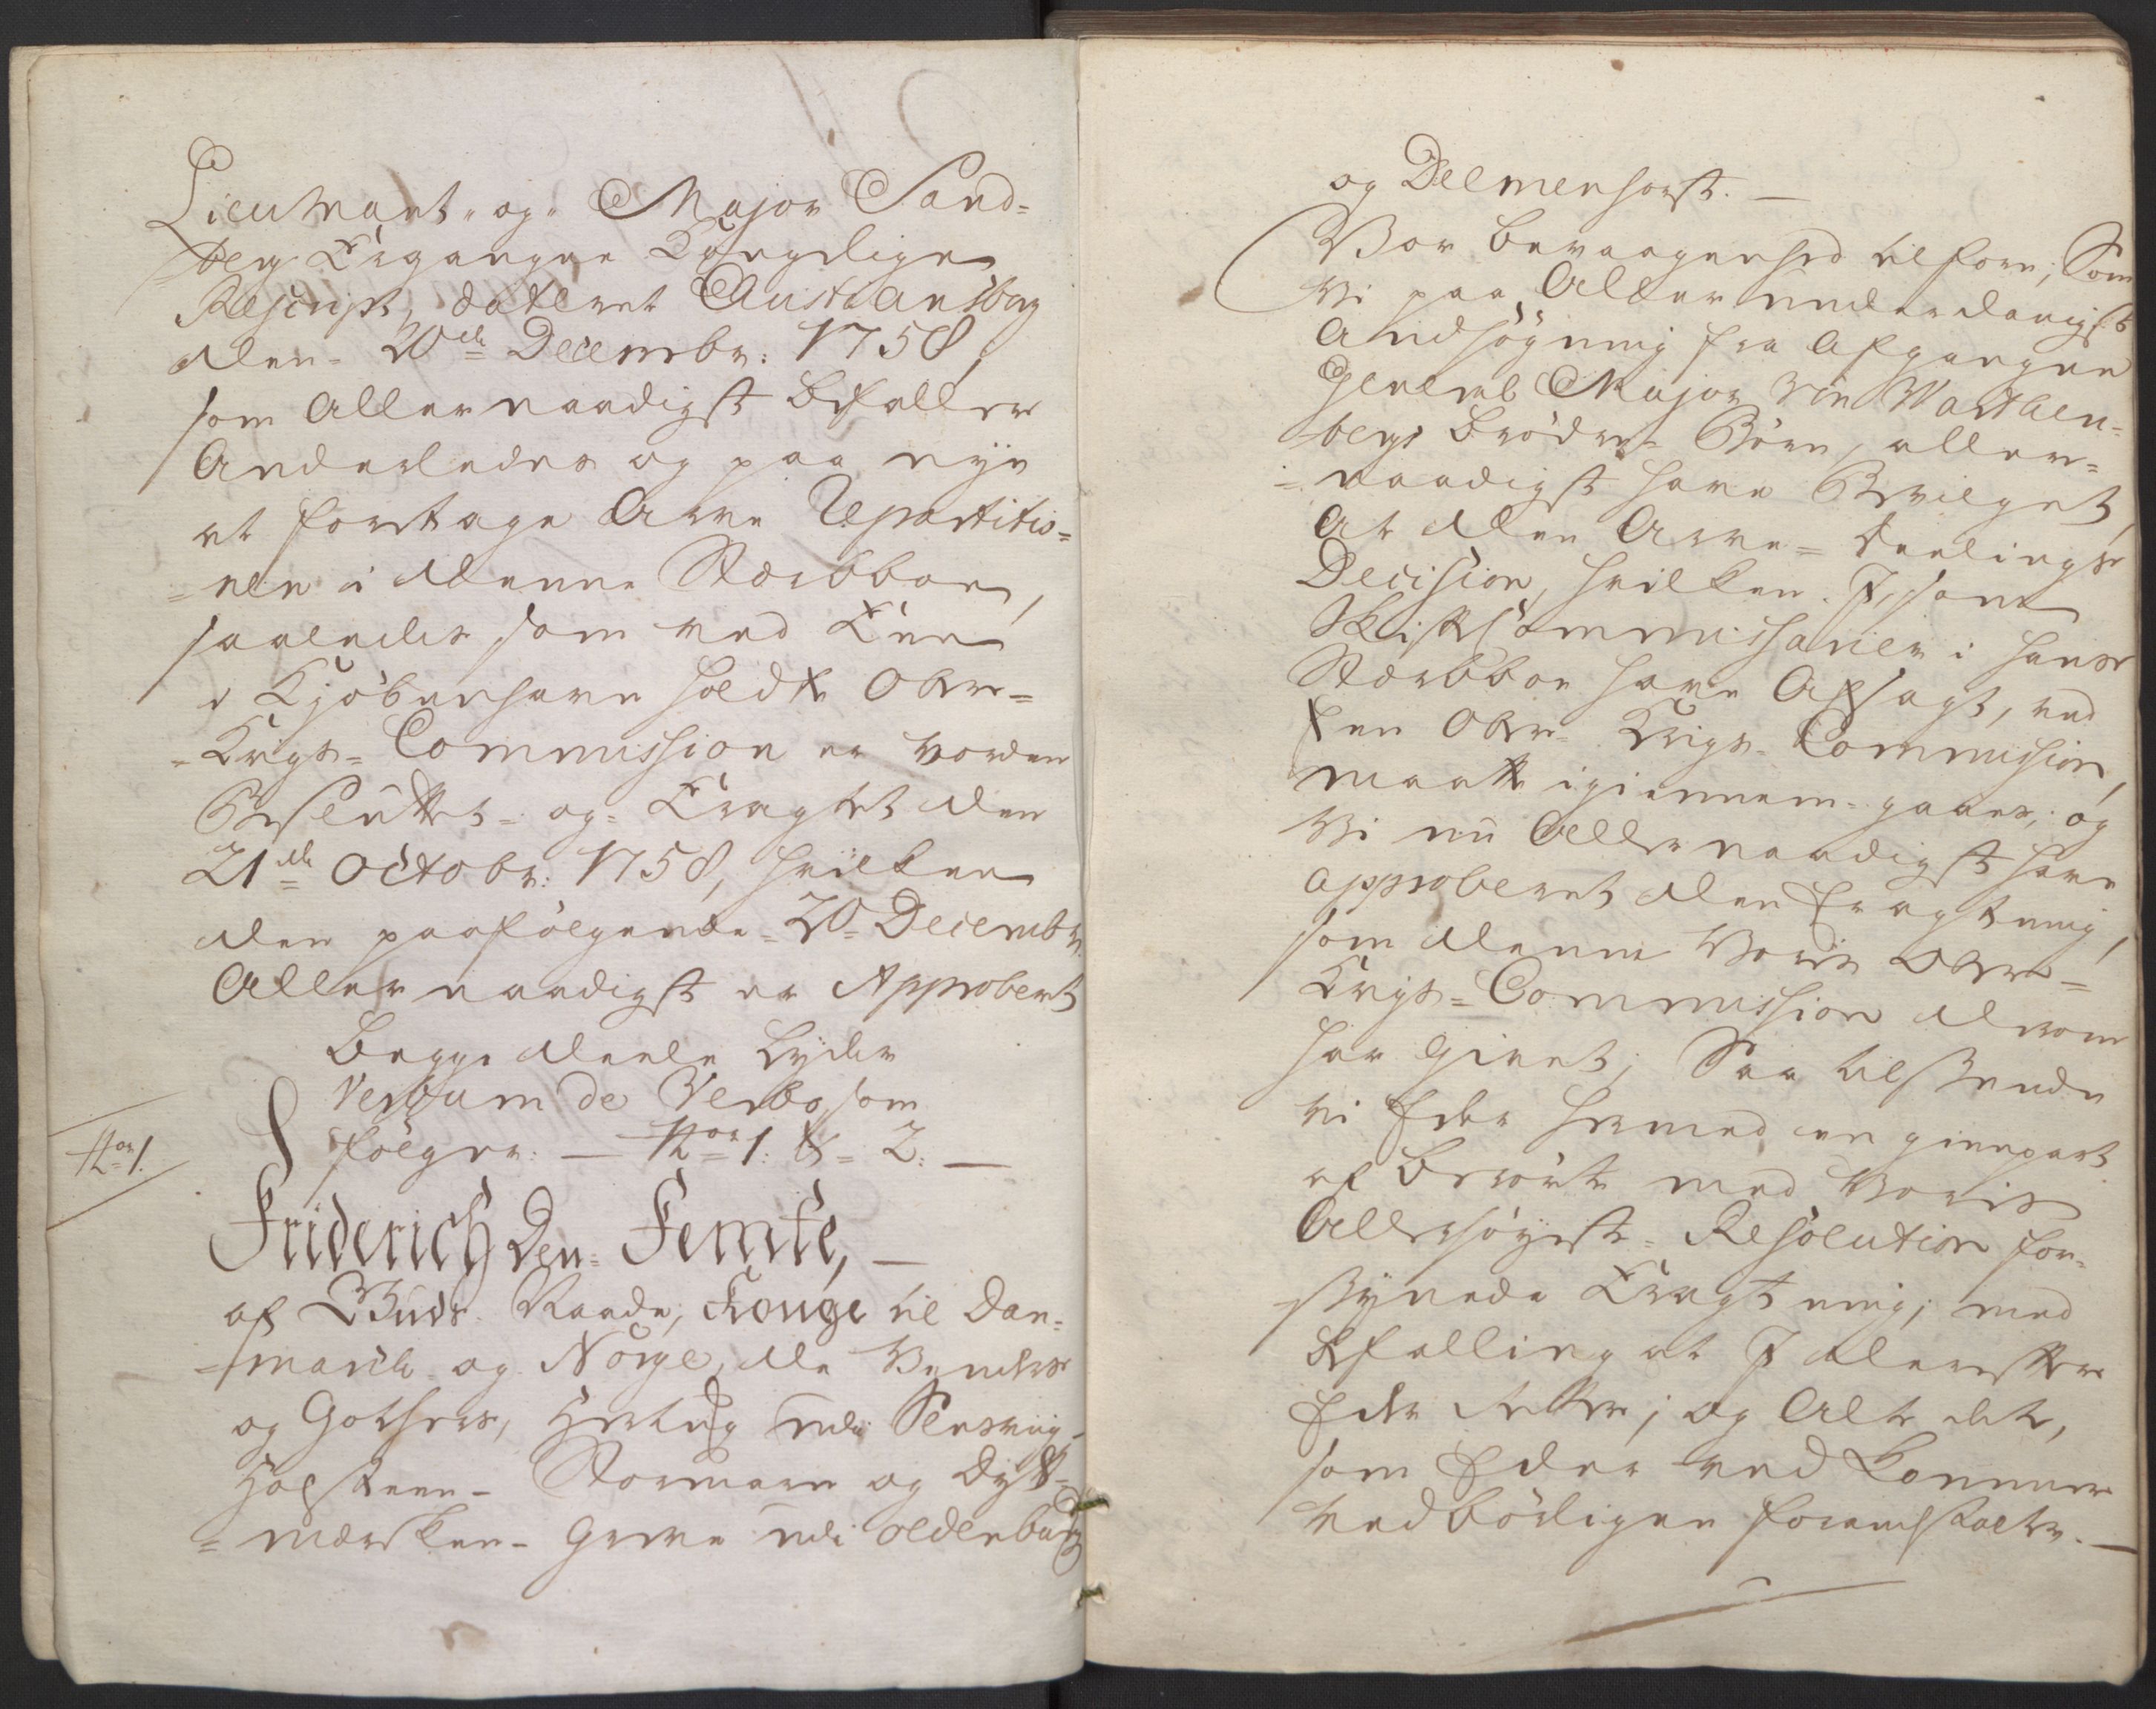 Lieutnant- og Major Sand-
berg Ergangne Kongelige
Rescript, dateret Christiansborg
den 20de Decembr: 1758,
som Allernaadigst Befaller
Anderledes og paa nye
at foretage Arve Repartitio-
nen i denne Stærbboe,
saaledes som ved Een
i Kjöbenhavn holdte Over-
Krigs-Commission er vorden
Besluttet- og Eragtet den
21de Octobr: 1758, hvilken
den paafölgende 20 Decembr.
Allernaadigst er Approbert
Begge deele Lyder
Verbum de Verbo som
fölger. — Nor 1: & 2. —
Nor 1.
Friderich den Femte, —
af Guds Naade, Konge til Dan-
march og Norge, de Venders
og Gothers, Hertug udi Slesvig-
Holsteen- Stormarn og Dyt-
mersken- Greve udi Oldenburg
og Delmenhorst. —
Vor bevaagenhed tilforn; Som
Vi paa Allerunderdanigst
Andsögning fra Afgangne
General Major von Warthen-
bergs Brödre-Börn, aller-
naadigst have Bevilget,
At den Arve-Deelings
Decision, hvilken I, som
Skifte Commissarier i hans
Stærbboe have Afsagt, ved
een Over-Krigs-Commission,
maatte igiennem-gaaes; og
Vi nu Allernaadigst have
approberet den Eragtning,
som denne Vores Over-
Krigs-Commission derom
har givet; Saa tilsende
vi Eder hermed en gienpart
af berörte med Vores
Allerhöyeste Resolution for-
synede Eragtning; med
Befalling at I derefter
Eder retter; og Alt det,
som Eder vedkommer
vedbörligen foranstalter. —